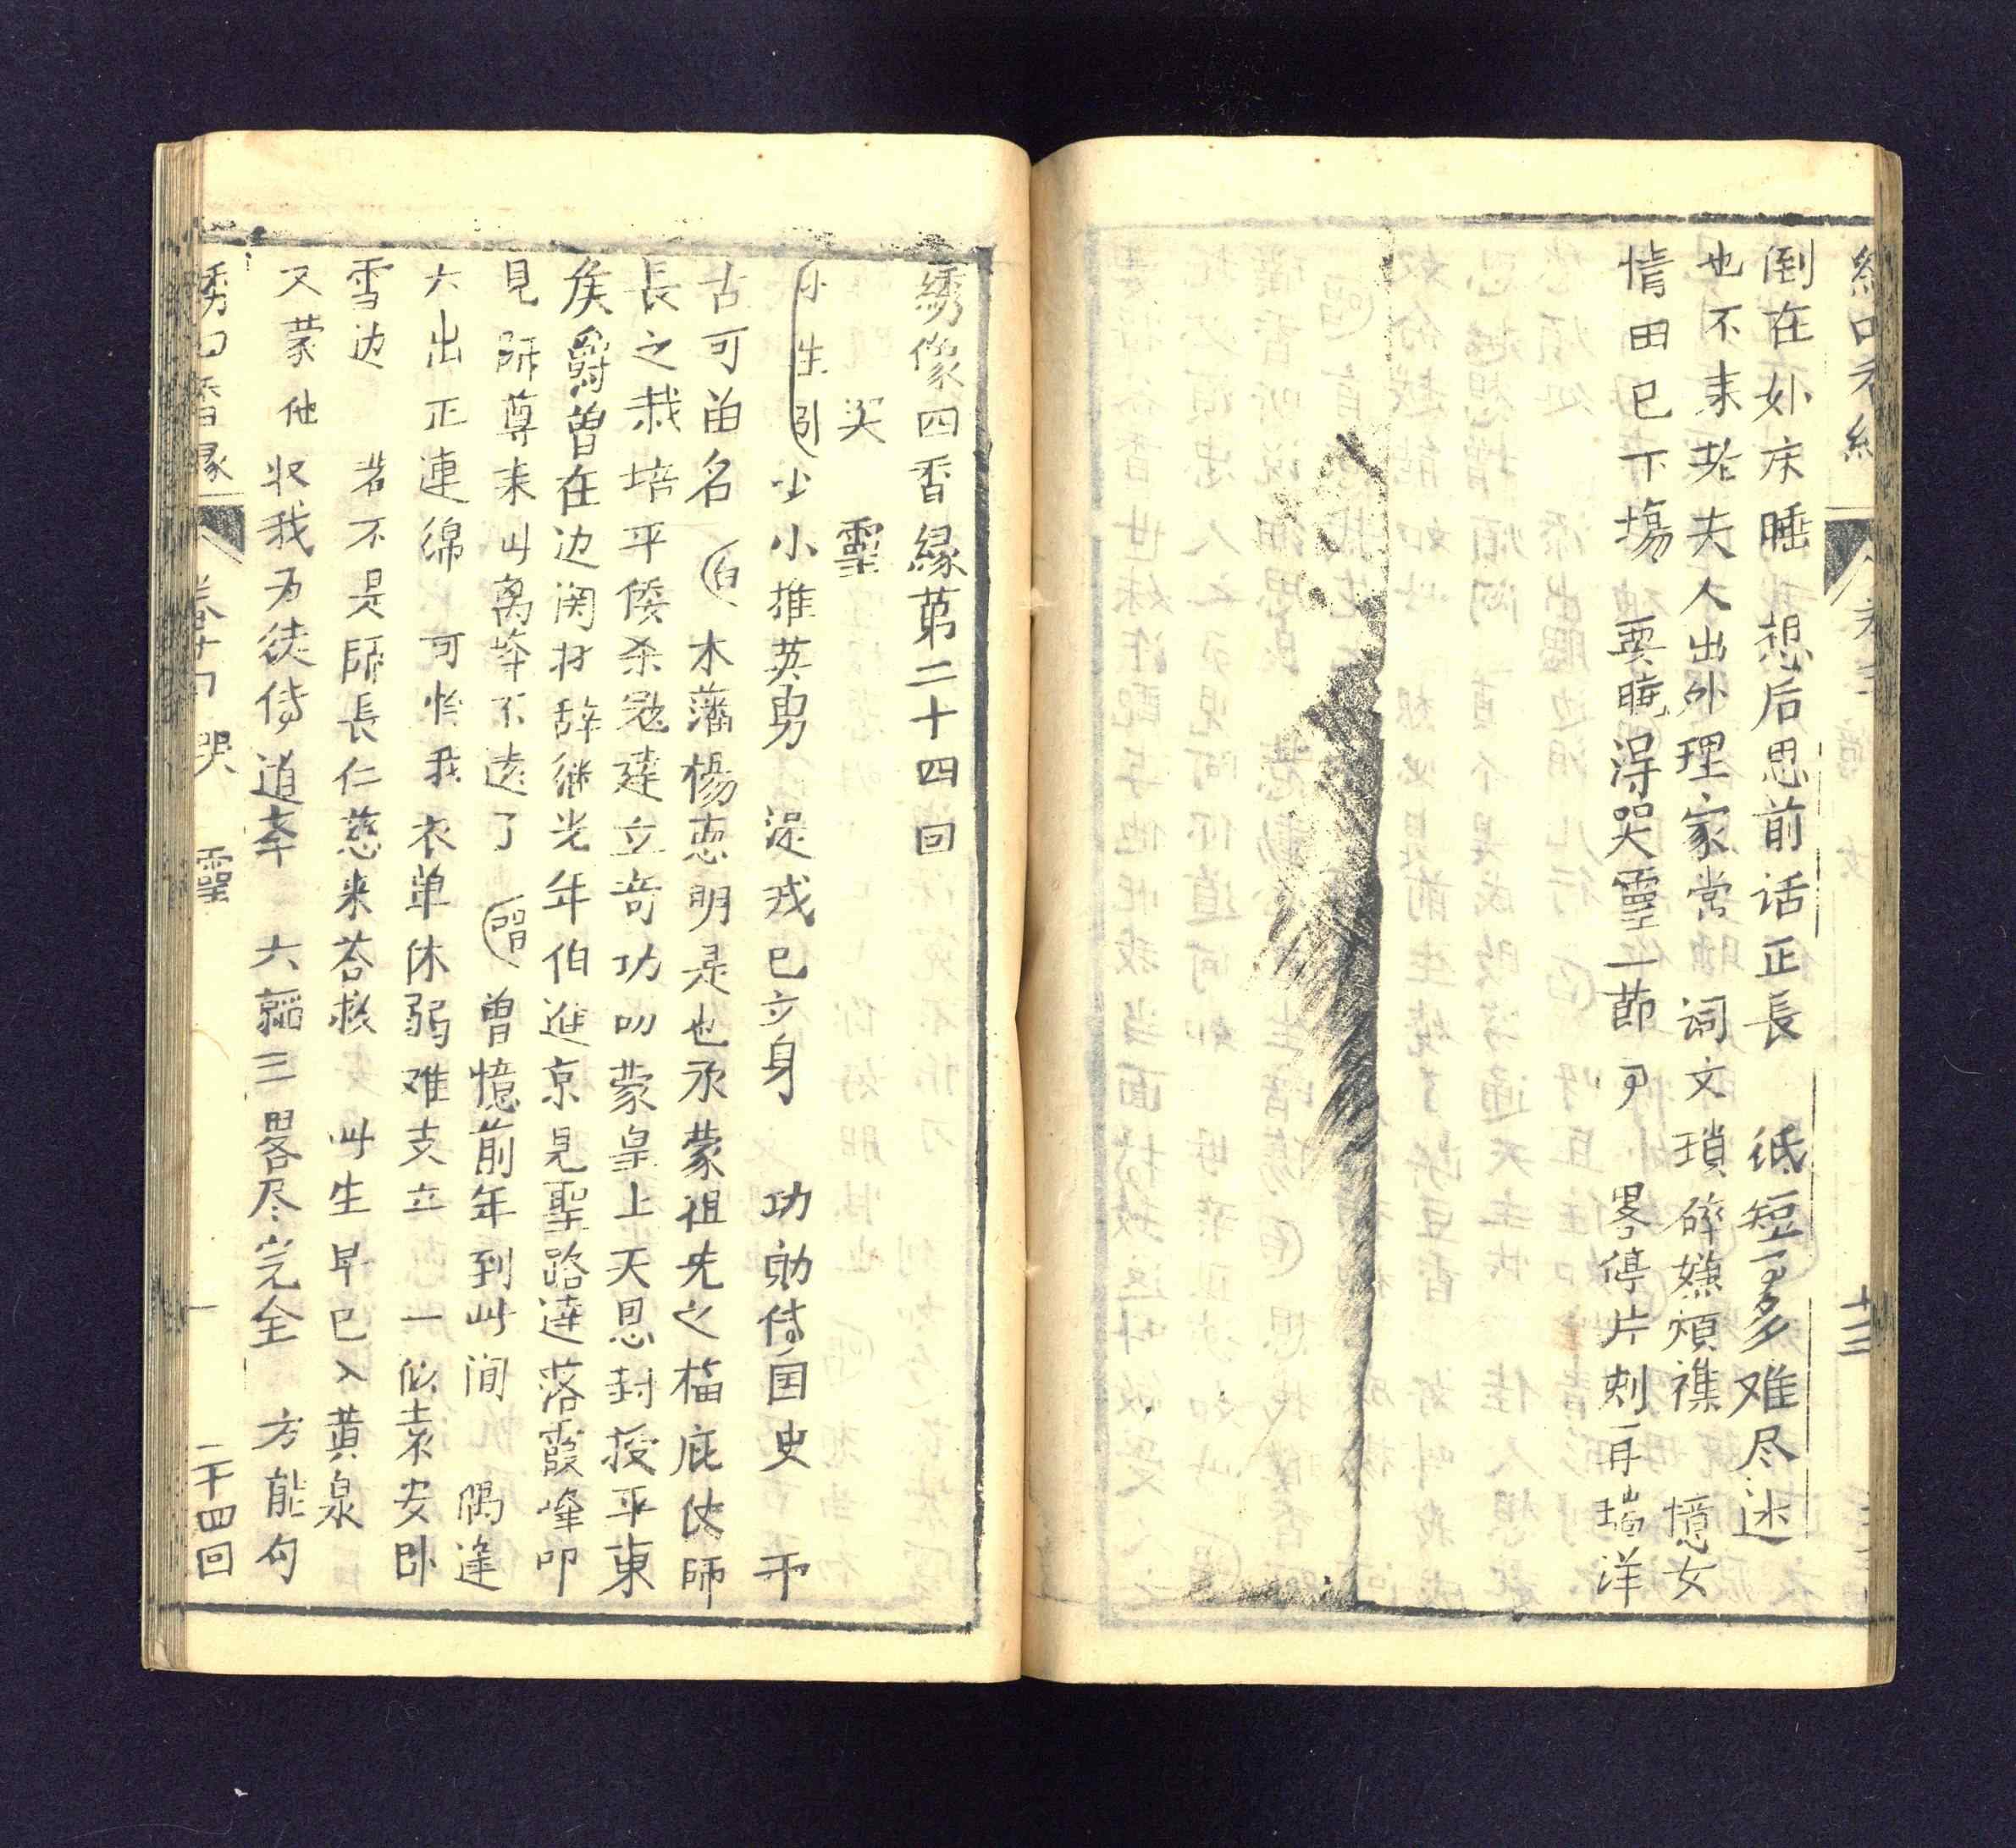 倒在妙床睡　想后思前话正長　紙短言多难尽述
也不来老夫人出外理家常　词文瑣碎嫌煩襍　憶女
情田巳下塲　要聴淂哭靈一節事　畧停片刻再端洋
十三
绣像四香緣苐二十四回
哭　靈
小生引　少小推英勇　浞戎巳立身　功勛传国史　千
古可畄名　白　木藩楊惠明是也承蒙祖先之福庇仗師
長之栽培平倭杀冦建立竒功叨蒙皇上天恩封授平東
矦爵曽在边関扌辞継光年伯進京見聖路逹落霞峰叩
見師尊来此离華不远了　唱　曽憶前年到此间　偶逢
六出正連綿　可怜我衣单休弱难支立　一似袁安卧
雪边　若不是師長仁慈来荅救　此生早巳入黄泉
又蒙他收我为徒传道李　六韜三畧尽完全　方能勾
卷十四　哭　靈
二十四回